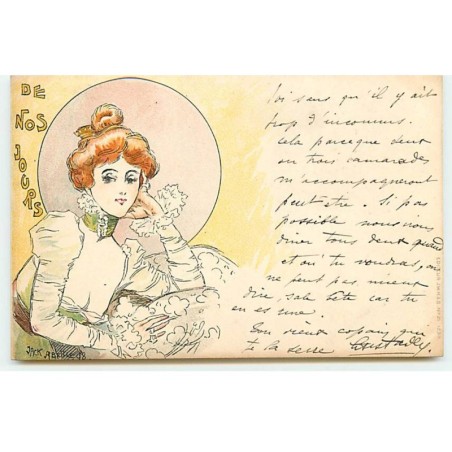 DE
NOS
JOURS
ici sans qu'il y ait
trop d'inconnus.
Cela parceque deux
ou trois camarades
m'accompagneront
peut etre. Si pas
possible nous irons
diner tous deux quand
et où tu voudras, on
ne peut pas mieux
dire, sale tête car tu
en es une.
Ton vieux copain qui
te la serre
JACK ABEILLÉ 98